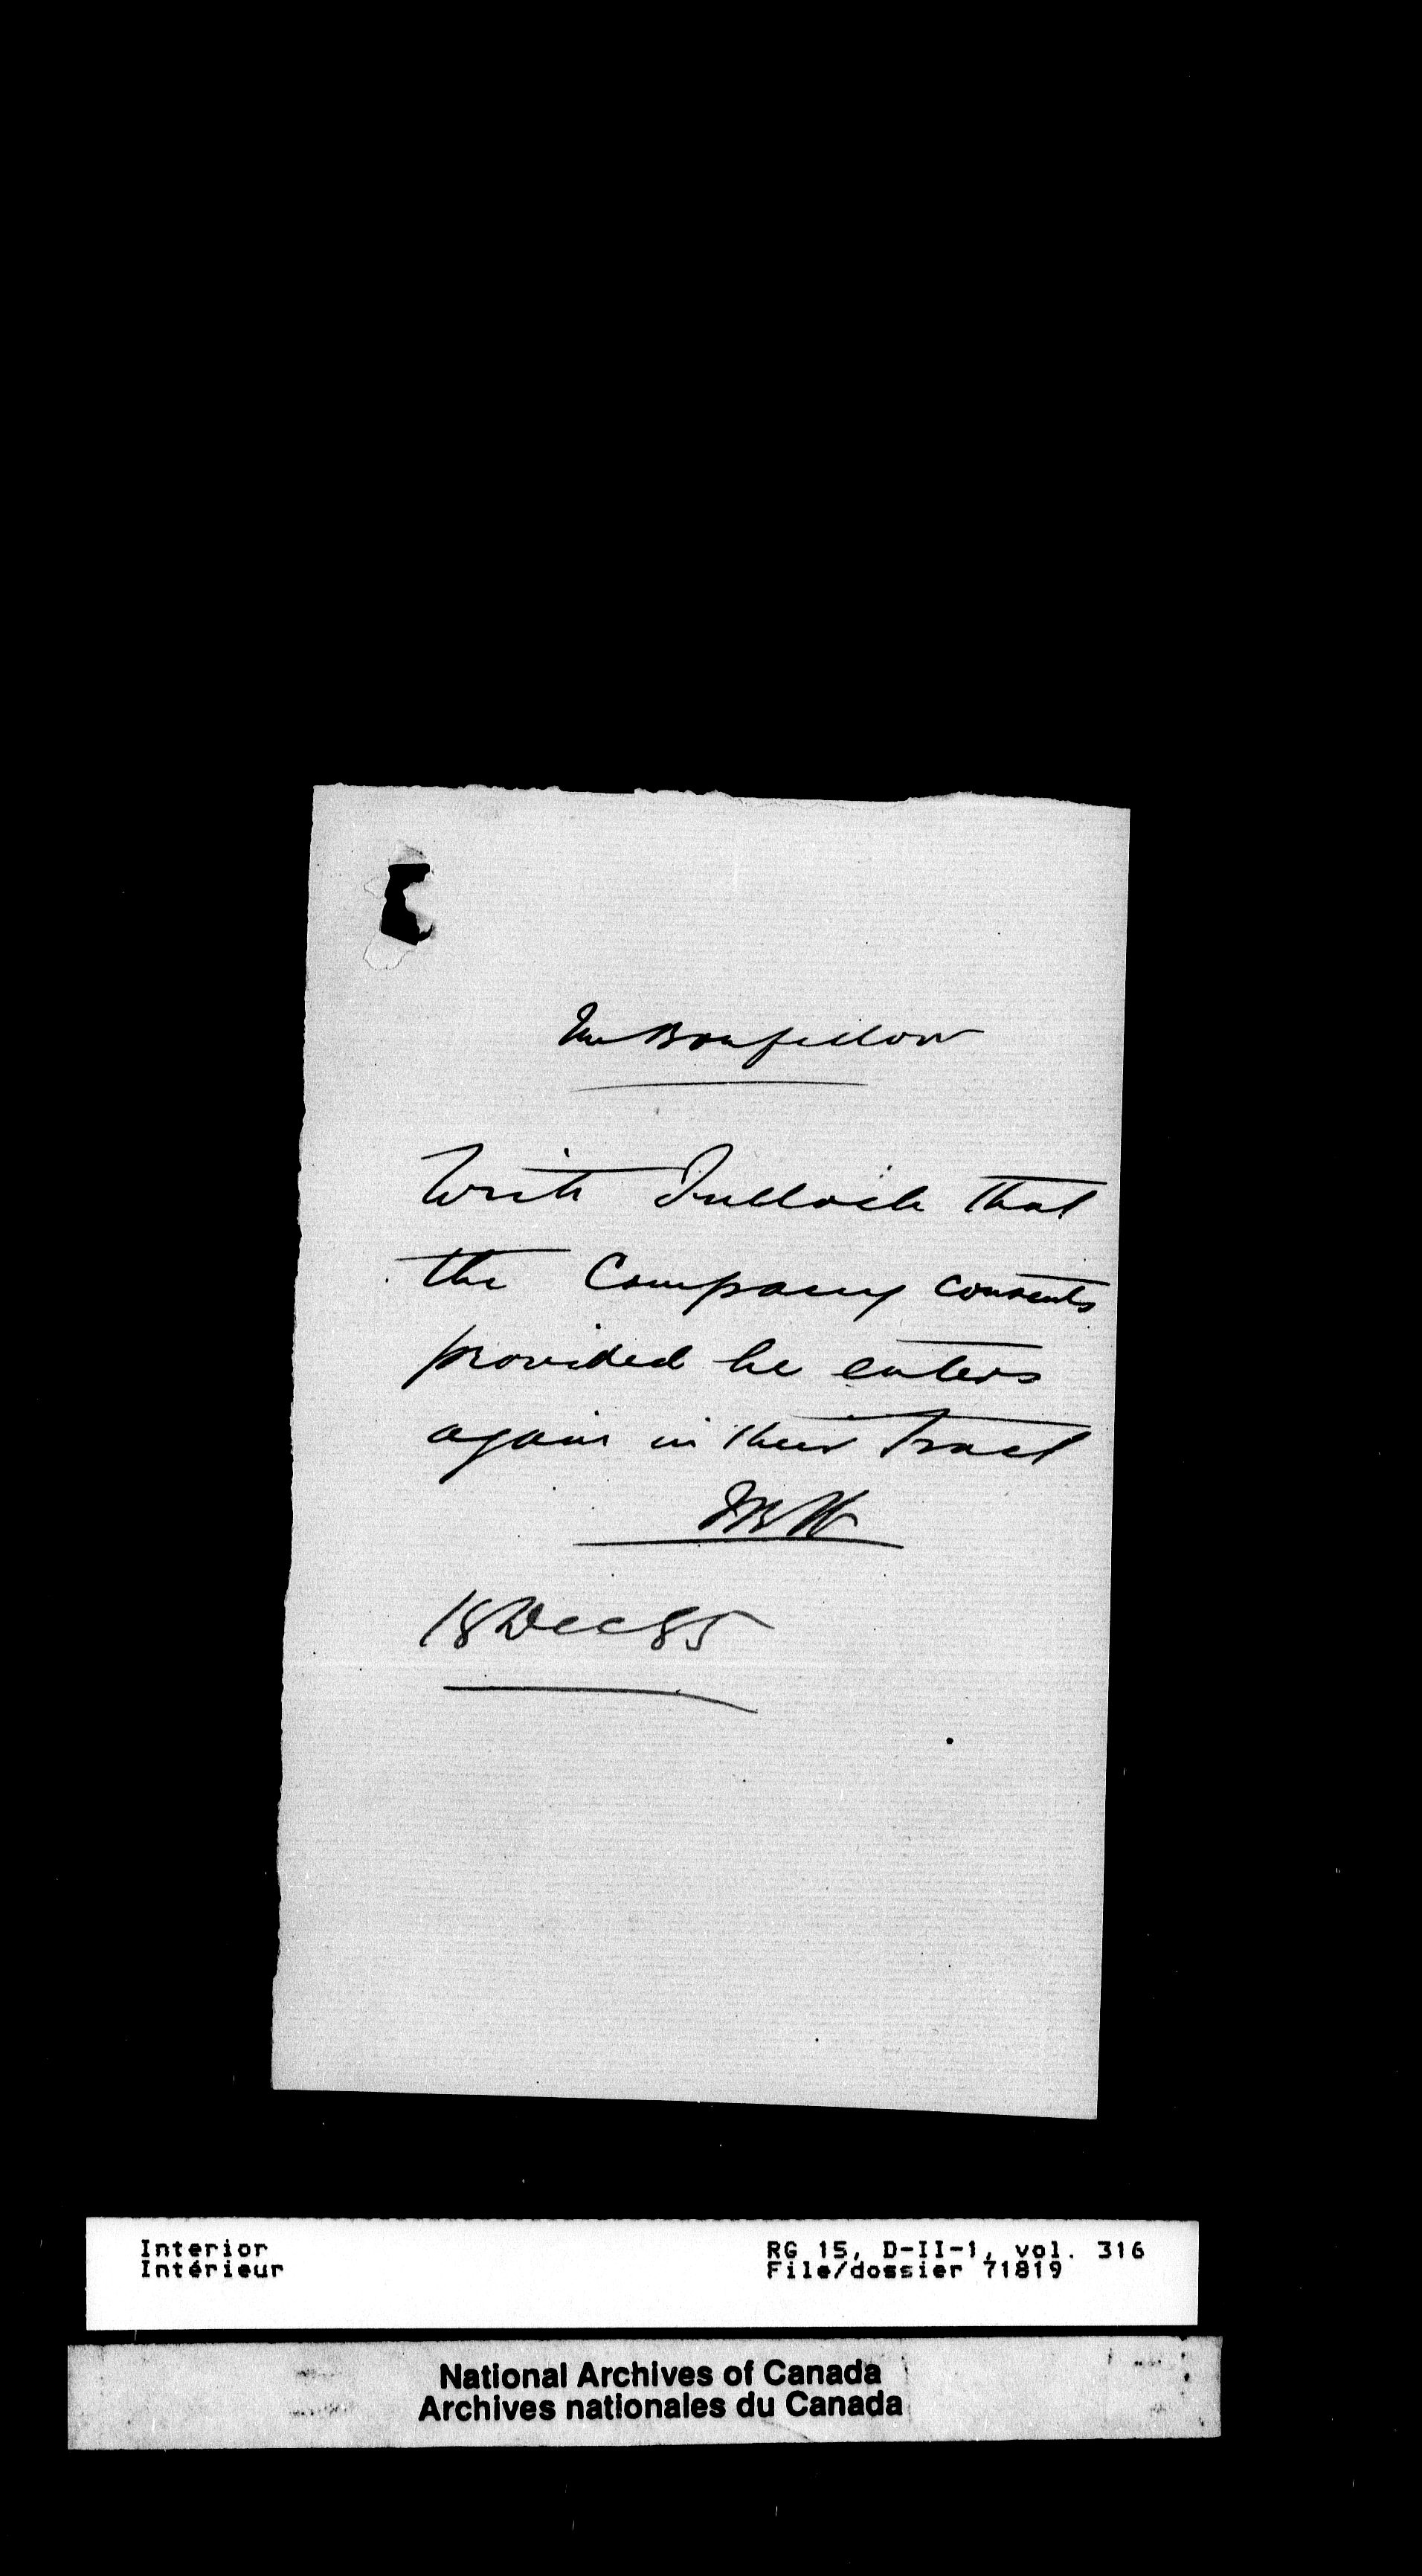 Mr Bonfellow
Write Tulloch that
the Company consents
provided he enters
again in their Tract
18 Dec 85
Interior
Intérieur
RG 15, D-II-1, vol. 316
File/dossier 71819
National Archives of Canada
Archives nationales du Canada